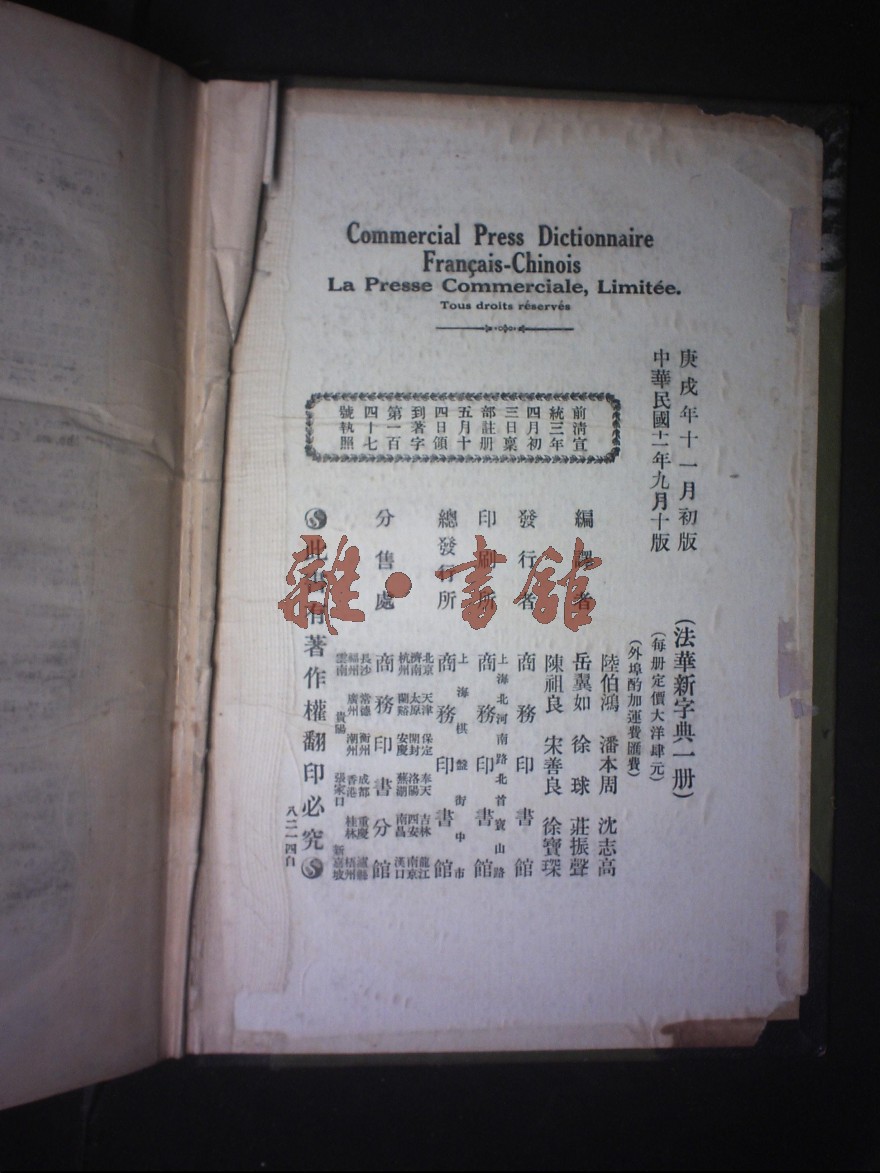 Commercial Press Dictionnaire
Français-Chinois
La Presse Commerciale, Limitée.
Tous droits réservés
庚戌年十一月初版
中華民國十一年九月十版
前清宣
統三年
四月初
三日稟
部註册
五月十
四日領
到著字
第一百
四十七
號執照
(法華新字典一册)
(每册定價大洋肆元)
(外埠酌加運費匯費)
編譯者
陸伯鴻 潘本周 沈志高
岳翼如 徐球 莊振聲
陳祖良 宋善良 徐寶琛
發行者 商務印書館
印刷所
上海北河南路北首寶山路
商務印書館
總發行所
上海棋盤街中市
商務印書館
分售處
北京 天津 保定 奉天 吉林 龍江
濟南 太原 開封 洛陽 西安 南京
杭州 蘭谿 安慶 蕪湖 南昌 漢口
商務印書分館
長沙 常德 衡州 成都 重慶 瀘縣
福州 廣州 潮州 香港 桂林 梧州
雲南 貴陽 張家口 新嘉坡
此書有著作權翻印必究
八二一四自
雜·書館